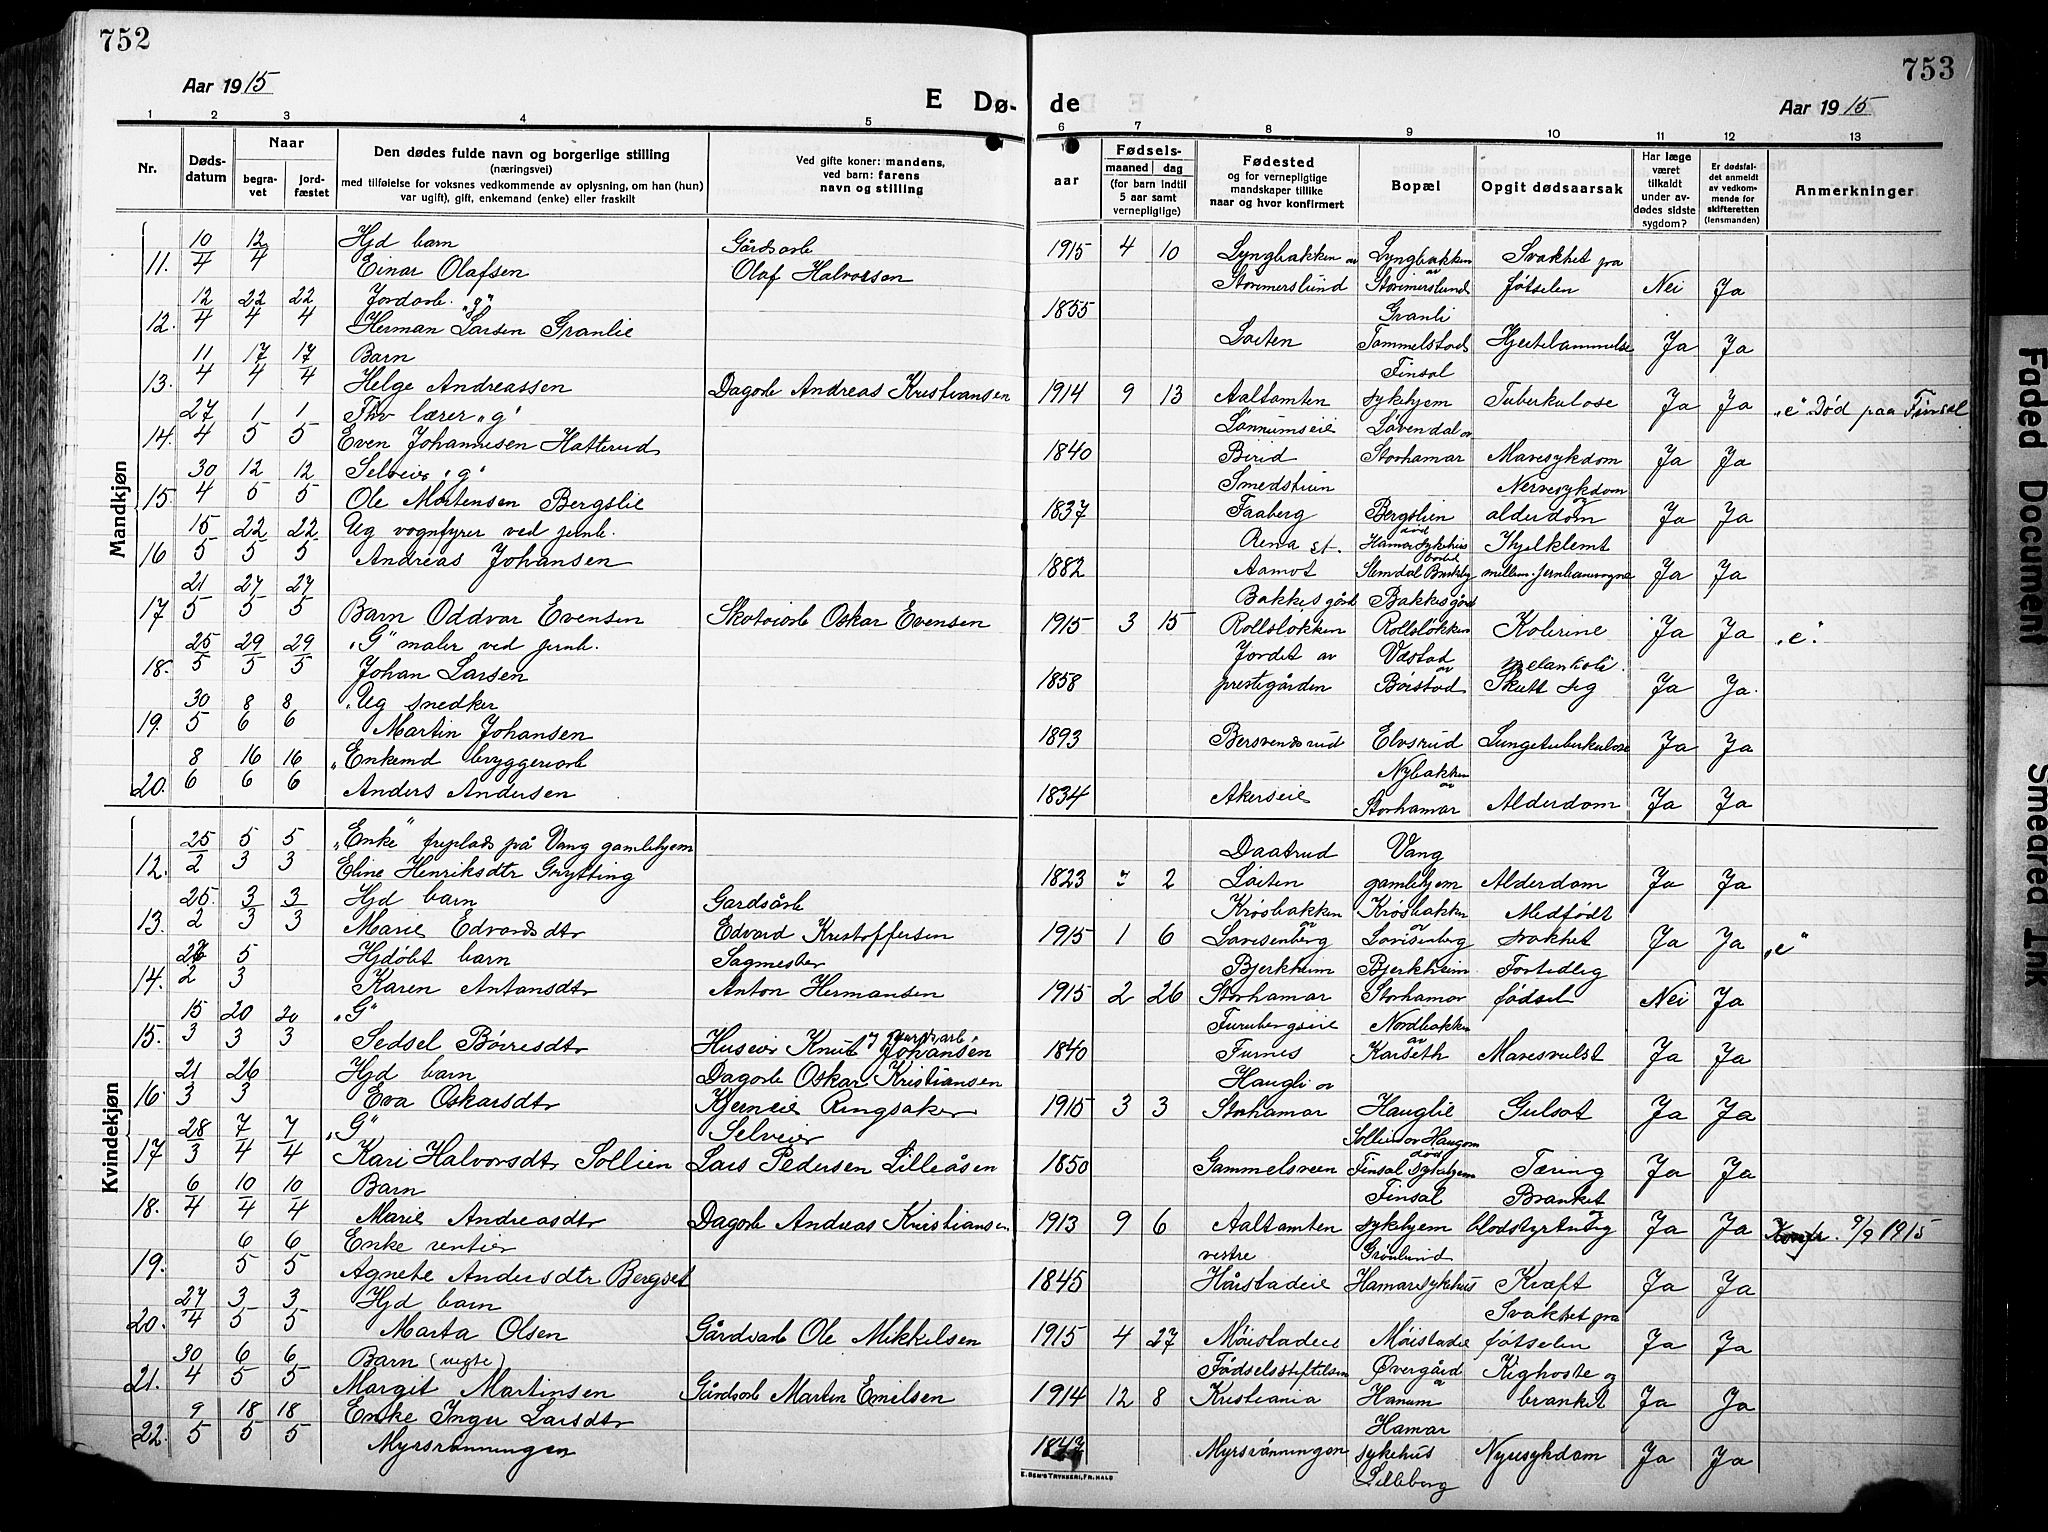 752
753
Aar 1915
E Dø-
de
Aar 1915
1 2 3 4 5 6 7 8 9 10 11 12 13
Nr.
Døds-
datum
Naar
begra-
vet
jord-
fæstet
Den dødes fulde navn og borgerlige stilling
(næringsvei)
med tilføielse for voksnes vedkommende av oplysning, om han (hun)
var ugift), gift, enkemand (enke) eller fraskilt
Ved gifte koner: mandens,
ved barn: farens
navn og stilling
Fødsels-
aar
maaned dag
(for barn indtil
5 aar samt
vernepligtige)
Fødested
og for vernepligtige
mandskaper tillike
naar og hvor konfirmert
Bopæl
Opgit dødsaarsak
Har læge
været
tilkaldt
under av-
dødes sidste
sygdom?
Er dødsfal-
det anmeldt
av vedkom-
mende for
skifteretten
(lensmanden)
Anmerkninger
Mandkjøn
10/4 12/4 Hjd barn Gårdsarb 1915 4 10 Lyngbakken av Lyngbakken av Svakhet fra
11. Einar Olafsen Olaf Halvorsen Storimerslund Storimerslund føtselen Nei Ja
12/4 22/4 22/4 Jordarb. "g" 1855 Granli
12. Herman Larsen Granlie Loiten Tommelstad Hjertelammelse Ja Ja
11/4 17/4 17/4 Barn Finsal
13. Helge Andreassen Dagarb Andreas Kristiansen 1914 9 13 Aaltamten sykehjem Tuberkulose Ja Ja "e" Død paa Finsal
27/4 1/5 1/5 Fhv lærer "g" Lønnumseie Løvendal av
14. Even Johannesen Hatterud 1840 Birid Storhamar Mavesykdom Ja Ja
30/4 12/5 12/5 Selveier "g" Smedstuin Nervesykdom og
15. Ole Mortensen Bergslie 1837 Faaberg Bergslien alderdom Ja Ja
15/5 22/5 22/5 Ug vognfyrer ved jernb. Rena st. død Hamar sykehus Ihjelklemt
16 Andreas Johansen 1882 Aamot bosted mellem jernbanevogne Ja Ja
21/5 27/5 27/5 Bakkes gård Bakkes gård
17 Barn Oddvar Evensen Skotøiarb Oskar Evensen 1915 3 15 Rollsløkken Rollsløkken Kolerine Ja Ja "e".
25/5 29/5 29/5 "G" maler ved jernb. Jordet av av melankoli.
18. Johan Larsen 1858 prestegården Skutt sig Ja Ja.
30/5 8/6 8/6 "Ug snedker
19. Martin Johansen 1893 Bersvendsrud Elvsrud Lungetuberkulose Ja Ja
8/6 16/6 16/6 "Enkemd bryggeriarb Nybakken av
20. Anders Andersen 1834 Akerseie Storhamar Alderdom Ja Ja
Kvindekjøn
25/2 5/3 5/3 "Enke" friplads på Vang gamlehjem Daatrud Vang
12. Eline Henriksdtr Grytting 1823 2 Loiten gamlehjem Alderdom Ja Ja
25/2 3/3 3/3 Hjd barn Gardsårb Krøsbakken av Krøsbakken av Medfødt
13. Marie Edvardsdtr Edvard Kristoffersen 1915 1 6 Lovisenberg Lovisenberg svakhet Ja Ja "e"
26/2 5/3 Hjdøbt barn Sagmester Bjerkheim Bjerkheim Fortidlig
14. Karen Antonsdtr Anton Hermansen 1915 2 26 Storhamar Storhamar fødsel Nei Ja
15/3 20/3 20/3 "G" Furubergseie Nordbakken av
15. Sedsel Børresdtr Huseier Knut Johansen 1840 Furnes Karseth Mavesvulst Ja Ja
21/3 26/3 Hjd barn Dagarb Oskar Kristiansen Haugli av
16. Eva Oskarsdtr Kjerneie Ringsaker 1915 3 3 Storhamar Hauglie Gulsot Ja Ja
28/3 7/4 7/4 "G" Selveier Sollien av Haugom
17 Kari Halvorsdtr Sollien Lars Pedersen Lilleåsen 1850 Gammelsveen død Finsal sykehjem Tæring Ja Ja
6/4 10/4 10/4 Barn Finsal Branket og
18. Marie Andreasdtr Dagarb Andreas Kristiansen 1913 9 6 Aaltamten sykehjem blodstyrtning Ja Ja 9/9 1915
6/5 6/5 Enke rentier vestre Grønlund
19. Agnete Andersdtr Bergset 1845 Håistadeie Hamar sykehus Kræft Ja Ja
27/4 3/5 3/5 Hjd barn Svakhet fra
20. Marta Olsen Gårdarb Ole Mikkelsen 1915 4 27 Møistadeie Møistadeie føtselen Ja Ja
30/4 6/5 6/5 Barn (uegte) Fødselsstiftelsen Øvergård av Kighoste og
21. Margit Martinsen Gårdsarb Martin Emilsen 1914 12 8 Kristiania Hanum branket Ja Ja
9/5 18/5 18/5 Enke Inger Larsdtr Hamar
22. Myrsrønningen Myrsrønningen sykehus Nyresykdom Ja Ja
Lilleberg
E. SEM'S TRYKKERI, FR.HALD
Faded Document
Smeared Ink